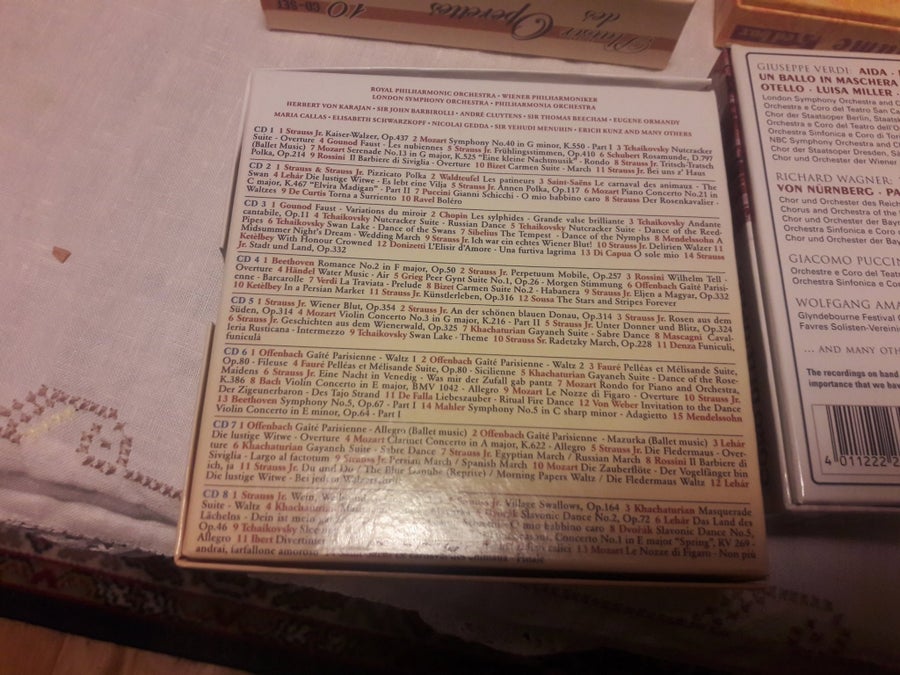 10
CD-SET
Plaisir des Operettes
ROYAL PHILHARMONIC ORCHESTRA · WIENER PHILHARMONIKER
LONDON SYMPHONY ORCHESTRA · PHILHARMONIA ORCHESTRA
HERBERT VON KARAJAN · SIR JOHN BARBIROLLI · ANDRÉ CLUYTENS · SIR THOMAS BEECHAM · EUGENE ORMANDY
MARIA CALLAS · ELISABETH SCHWARZKOPF · NICOLAI GEDDA · SIR YEHUDI MENUHIN · ERICH KUNZ AND MANY OTHERS
CD 1 1 Strauss Jr. Kaiser-Walzer, Op.437 2 Mozart Symphony No.40 in G minor, K.550 - Part I 3 Tchaikovsky Nutcracker
Suite - Overture 4 Gounod Faust - Les nubiennes 5 Strauss Jr. Frühlingsstimmen, Op.410 6 Schubert Rosamunde, D.797
(Ballet Music) 7 Mozart Serenade No.13 in G major, K.525 "Eine kleine Nachtmusik" - Rondo 8 Strauss Jr. Tritsch-Tratsch
Polka, Op.214 9 Rossini Il Barbiere di Siviglia - Overture 10 Bizet Carmen Suite - March 11 Strauss Jr. Bei uns z' Haus
CD 2 1 Strauss & Strauss Jr. Pizzicato Polka 2 Waldteufel Les patineurs 3 Saint-Saëns Le carnaval des animaux - The
Swan 4 Lehár Die lustige Witwe - Es lebt eine Vilja 5 Strauss Jr. Annen Polka, Op.117 6 Mozart Piano Concerto No.21 in
C major, K.467 "Elvira Madigan" - Part II 7 Puccini Gianni Schicchi - O mio babbino caro 8 Strauss Der Rosenkavalier -
Waltzes 9 De Curtis Torna a Surriento 10 Ravel Boléro
CD 3 1 Gounod Faust - Variations du miroir 2 Chopin Les sylphides - Grande valse brilliante 3 Tchaikovsky Andante
cantabile, Op.11 4 Tchaikovsky Nutcracker Suite - Russian Dance 5 Tchaikovsky Nutcracker Suite - Dance of the Reed-
Pipes 6 Tchaikovsky Swan Lake - Dance of the Swans 7 Sibelius The Tempest - Dance of the Nymphs 8 Mendelssohn A
Midsummer Night's Dream - Wedding March 9 Strauss Jr. Ich war ein echtes Wiener Blut! 10 Strauss Jr. Delirien Walzer 11
Ketèlbey With Honour Crowned 12 Donizetti L'Elisir d'Amore - Una furtiva lagrima 13 Di Capua O sole mio 14 Strauss
Jr. Stadt und Land, Op.332
CD 4 1 Beethoven Romance No.2 in F major, Op.50 2 Strauss Jr. Perpetuum Mobile, Op.257 3 Rossini Wilhelm Tell -
Overture 4 Händel Water Music - Air 5 Grieg Peer Gynt Suite No.1, Op.26 - Morgen Stimmung 6 Offenbach Gaité Parisi-
enne - Barcarolle 7 Verdi La Traviata - Prelude 8 Bizet Carmen Suite No.2 - Habanera 9 Strauss Jr. Eljen a Magyar, Op.332
10 Ketèlbey In a Persian Market 11 Strauss Jr. Künstlerleben, Op.316 12 Sousa The Stars and Stripes Forever
CD 5 1 Strauss Jr. Wiener Blut, Op.354 2 Strauss Jr. An der schönen blauen Donau, Op.314 3 Strauss Jr. Rosen aus dem
Süden, Op.314 4 Mozart Violin Concerto No.3 in G major, K.216 - Part II 5 Strauss Jr. Unter Donner und Blitz, Op.324
6 Strauss Jr. Geschichten aus dem Wienerwald, Op.325 7 Khachaturian Gayaneh Suite - Sabre Dance 8 Mascagni Caval-
leria Rusticana - Intermezzo 9 Tchaikovsky Swan Lake - Theme 10 Strauss Sr. Radetzky March, Op.228 11 Denza Funiculi,
funiculà
CD 6 1 Offenbach Gaîté Parisienne - Waltz 1 2 Offenbach Gaîté Parisienne - Waltz 2 3 Fauré Pelléas et Mélisande Suite,
Op.80 - Fileuse 4 Fauré Pelléas et Mélisande Suite, Op.80 - Sicilienne 5 Khachaturian Gayaneh Suite - Dance of the Rose-
Maidens 6 Strauss Jr. Eine Nacht in Venedig - Was mir der Zufall gab pantz 7 Mozart Rondo for Piano and Orchestra,
K.386 8 Bach Violin Concerto in E major, BMV 1042 - Allegro 9 Mozart Le Nozze di Figaro - Overture 10 Strauss Jr.
Der Zigeunerbaron - Des Tajo Strand 11 De Falla Liebeszauber - Ritual Fire Dance 12 Von Weber Invitation to the Dance
13 Beethoven Symphony No.5, Op.67 - Part I 14 Mahler Symphony No.5 in C sharp minor - Adagietto 15 Mendelssohn
Violin Concerto in E minor, Op.64 - Part I
CD 7 1 Offenbach Gaîté Parisienne - Allegro (Ballet music) 2 Offenbach Gaîté Parisienne - Mazurka (Ballet music) 3 Lehár
Die lustige Witwe - Overture 4 Mozart Clarinet Concerto in A major, K.622 - Allegro 5 Strauss Jr. Die Fledermaus - Over-
ture 6 Khachaturian Gayaneh Suite - Sabre Dance 7 Strauss Jr. Egyptian March / Russian March 8 Rossini Il Barbiere di
Siviglia - Largo al factotum 9 Strauss Jr. Persian March / Spanish March 10 Mozart Die Zauberflöte - Der Vogelfänger bin
ich, ja 11 Strauss Jr. Du und Du / The Blue Danube (Reprise) / Morning Papers Waltz / Die Fledermaus Waltz 12 Lehár
Die lustige Witwe - Bei jedem Walzerschritt
CD 8 1 Strauss Jr. Wein, Village Swallows, Op.164 3 Khachaturian Masquerade
Waltz 4 Khachaturian Slavonic Dance No.2, Op.72 6 Lehár Das Land des
Lächelns - Dein ist mein O mio babbino caro 8 Dvořák Slavonic Dance No.5,
Op.46 9 Tchaikovsky Concerto No.1 in E major "Spring", RV 269 -
Allegro 11 Ibert Divertimento 13 Mozart Le Nozze di Figaro - Non più
andrai, farfallone amoroso
GIUSEPPE VERDI: AIDA ·
UN BALLO IN MASCHERA
OTELLO · LUISA MILLER ·
London Symphony Orchestra and
Orchestra e Coro del Teatro San
Chor der Staatsoper Berlin, Staats
Orchestra e Coro del Teatro dell'O
Orchestra Sinfonica e Coro di Tor
NBC Symphony Orchestra and Ch
Chor der Staatsoper Dresden, Sä
Chor und Orchester der Wiener
RICHARD WAGNER:
VON NÜRNBERG · PA
Chor und Orchester des Reich
Chorus and Orchestra of the
Chor und Orchester der Bay
Orchestra Sinfonica e Coro
Chor und Orchester der Bay
GIACOMO PUCCIN
Orchestre e Coro del Teatro
Orchestra Sinfonica e Coro
WOLFGANG AMA
Glyndebourne Festival C
Favres Solisten-Vereini
... AND MANY OTH
The recordings on hand
importance that we hav
4 011222 2